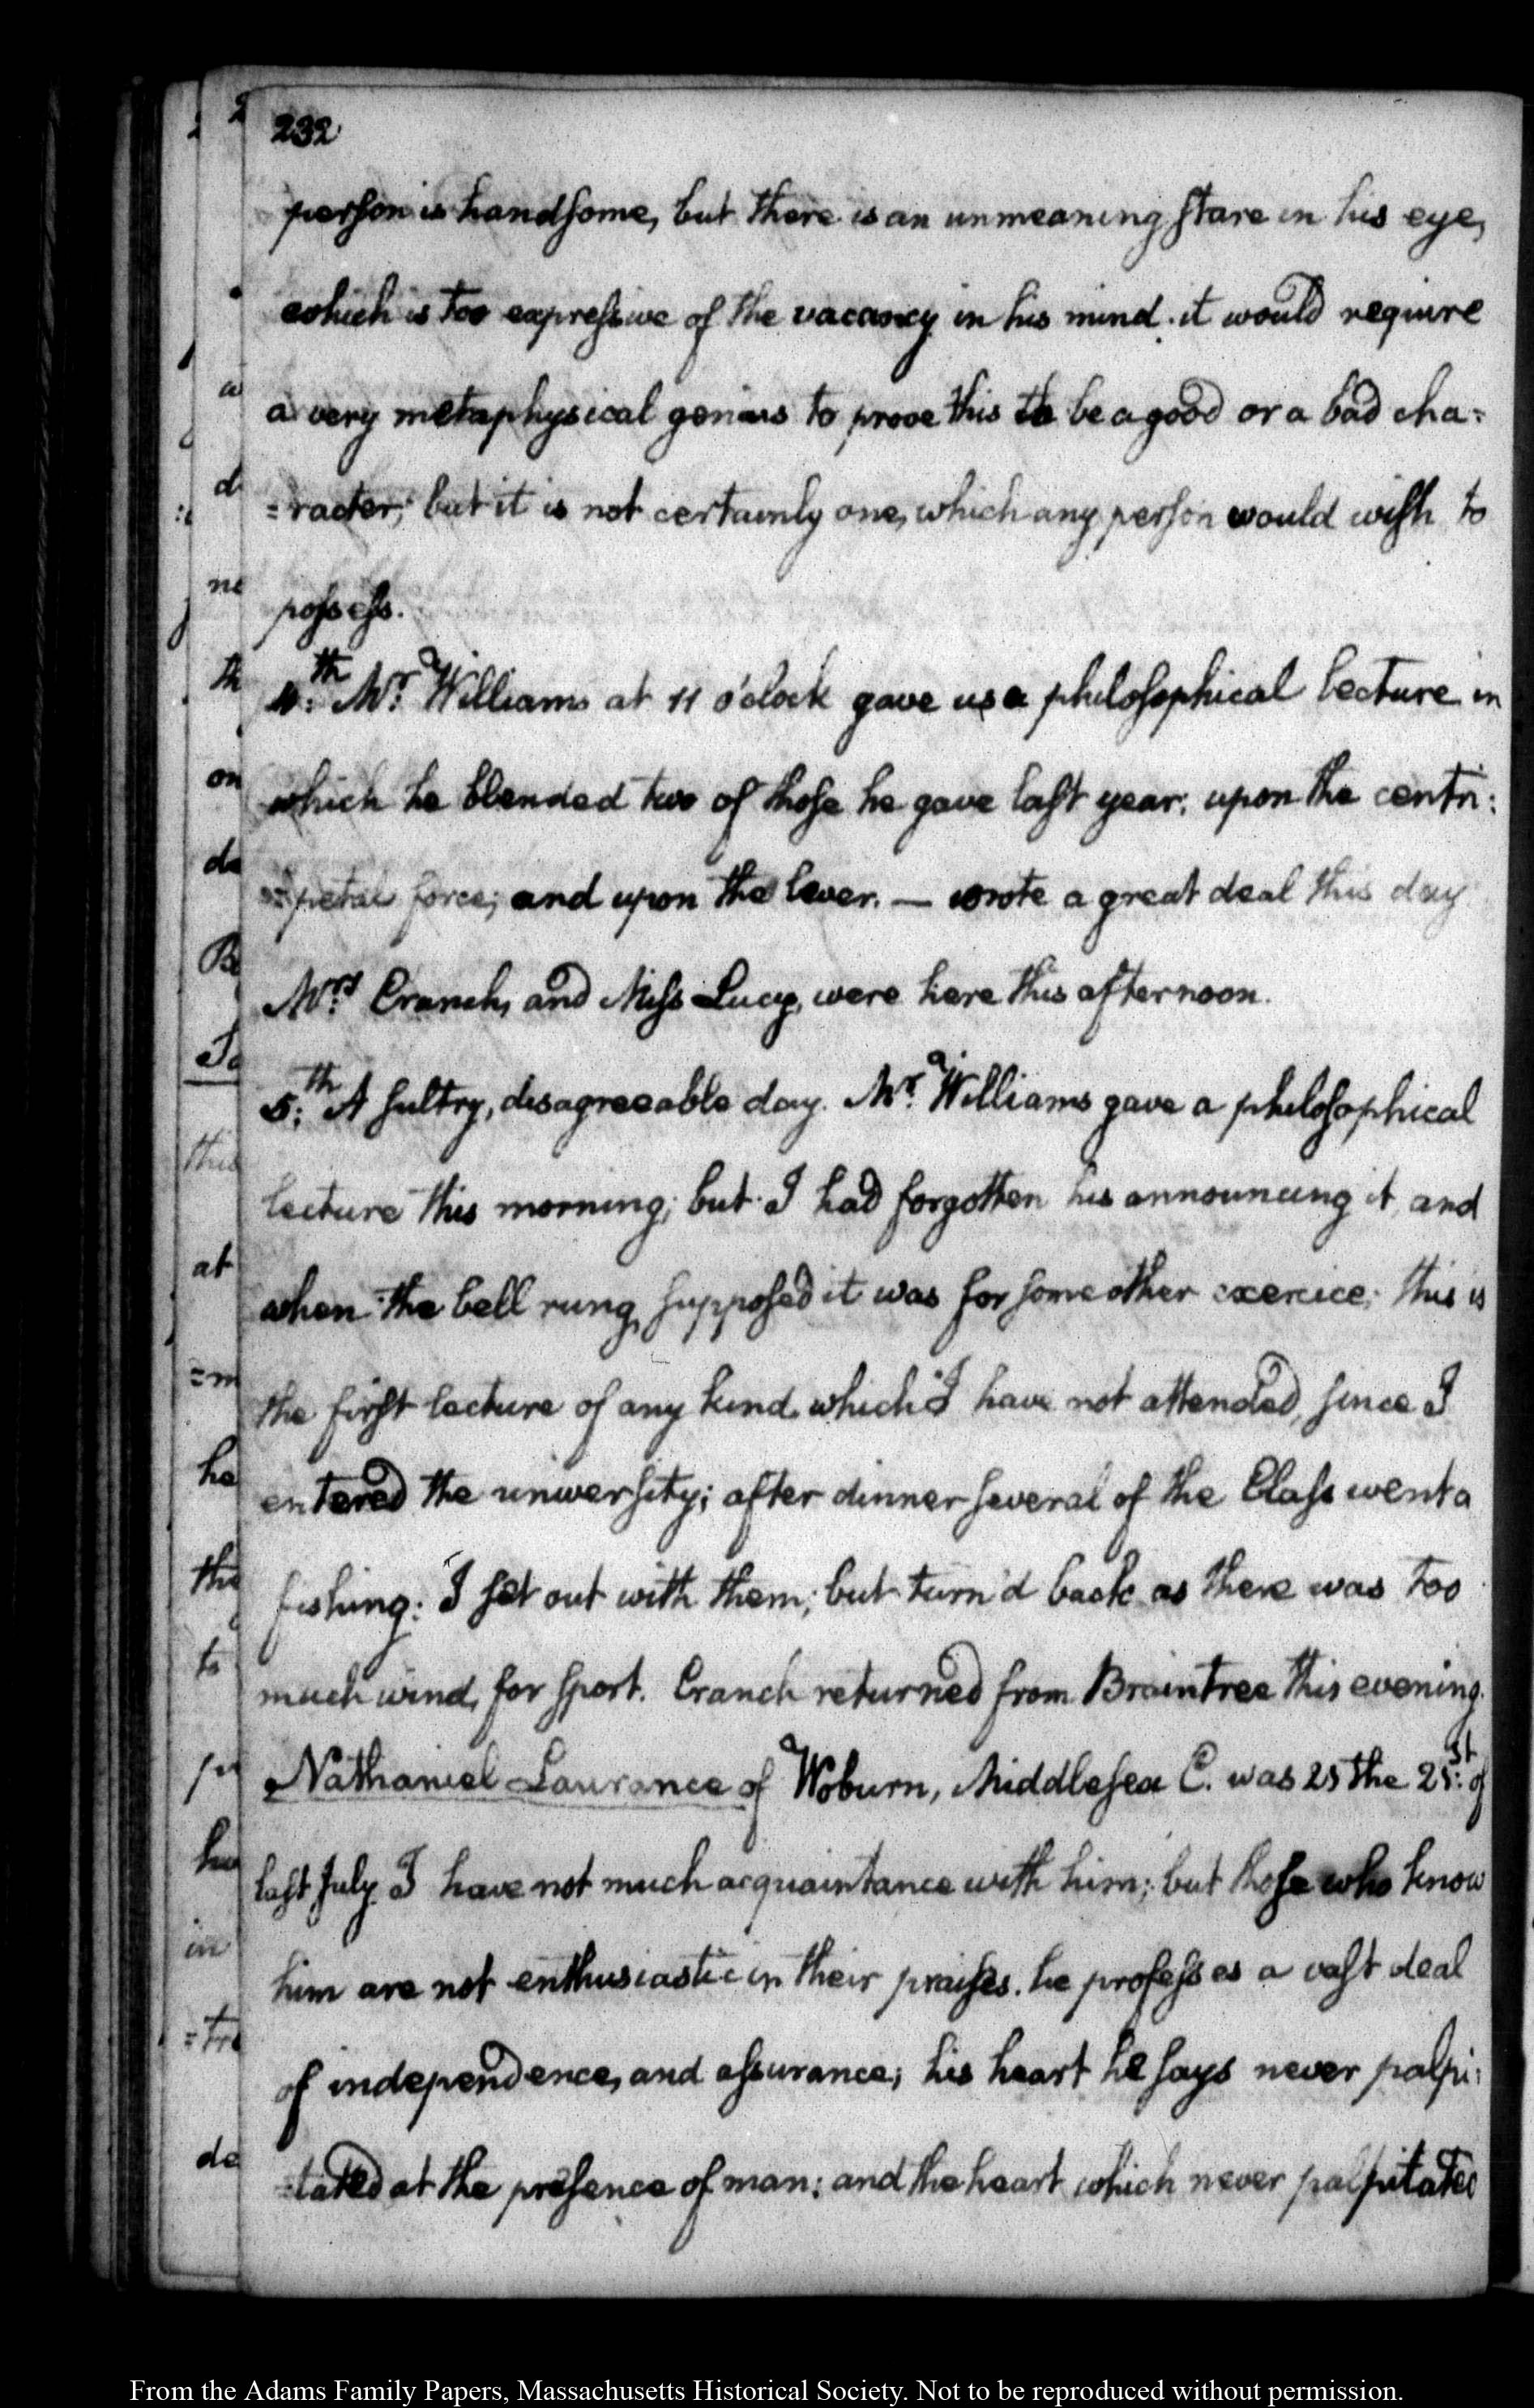 232
person is handsome, but there is an unmeaning stare in his eye,
which is too expressive of the vacancy in his mind. it would require
a very metaphysical genius to prove this to be a good or a bad cha=
=racter; but it is not certainly one, which any person would wish to
possess.
4:th Mr: Williams at 11 o'clock gave us a philosophical lecture in
which he blended two of those he gave last year: upon the centri=
=petal force; and upon the lever. — wrote a great deal this day
Mrs: Cranch, and Miss Lucy, were here this afternoon.
5:th A sultry, disagreeable day. Mr: Williams gave a philosophical
lecture this morning; but I had forgotten his announcing it, and
when the bell rung, supposed it was for some other exercice; this is
the first lecture of any kind which I have not attended, since I
entered the university; after dinner several of the Class went a
fishing: I set out with them; but turn'd back as there was too
much wind, for sport. Cranch returned from Braintree this evening.
Nathaniel Laurance of Woburn, Middlesex C. was 25 the 25:st of
last July. I have not much acquaintance with him; but those who know
him are not enthusiastic in their praises. he professes a vast deal
of independence, and assurance; his heart he says never palpi=
=tated at the presence of man: and the heart which never palpitates
From the Adams Family Papers, Massachusetts Historical Society. Not to be reproduced without permission.